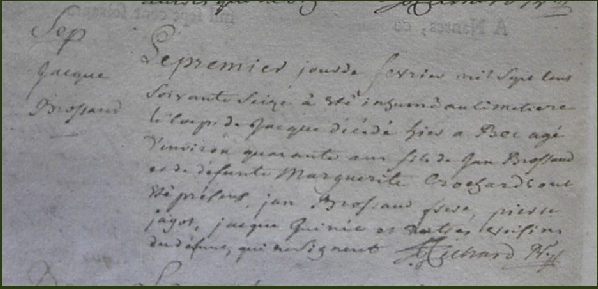 Sep
Jacque
Brossaud
Le premier jour de fevrier mil sept cens
soixante seize à eté inhumé au cimetiere
le corps de Jacque décédé hier a Bec agé
d'environ quarante ans fils de Jan Brossaud
et de défunte Marguerite Crochard ont
eté présens, jan Brossaud frere, pierre
jagot, jacque Guinée et autres voisins
du défunt, qui ne signent Richard
A Nantes, co
mil sept cent soixante